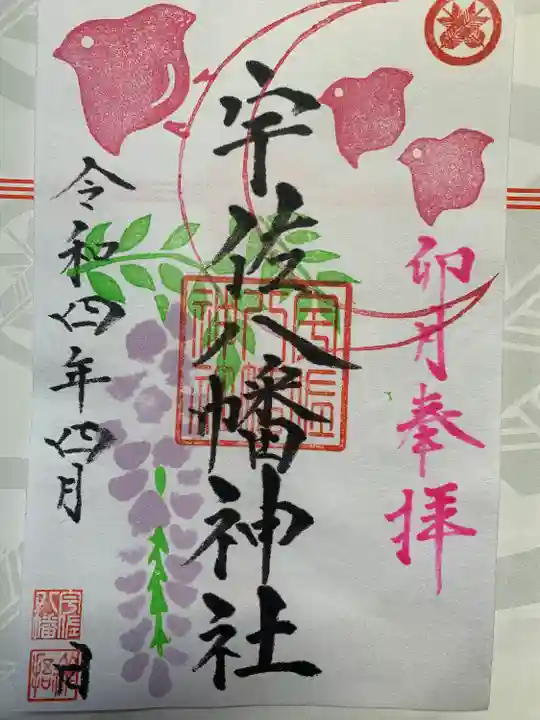 卯月奉拝
宇佐八幡神社
令和四年四月
宇佐八幡神社
宇佐八幡
日